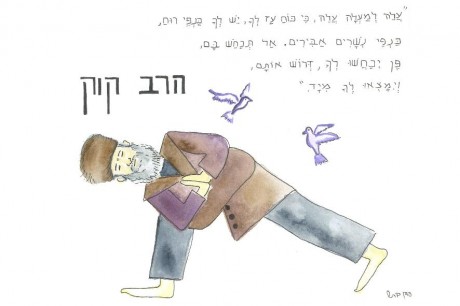 "עֲלֵה לְמַעְלָה עֲלֵה, כִּי כּוֹחַ עַז לְךָ, יֵשׁ לְךָ כַּנְפֵי רוּחַ,
כַּנְפֵי נְשָׁרִים אַבִּירִים. אַל תְּכַחֵשׁ בָּם,
פֶּן יְכַחֲשׁוּ לְךָ, דְּרוֹשׁ אוֹתָם,
וְיִמָּצְאוּ לְךָ מִיָּד."
הרב קוק